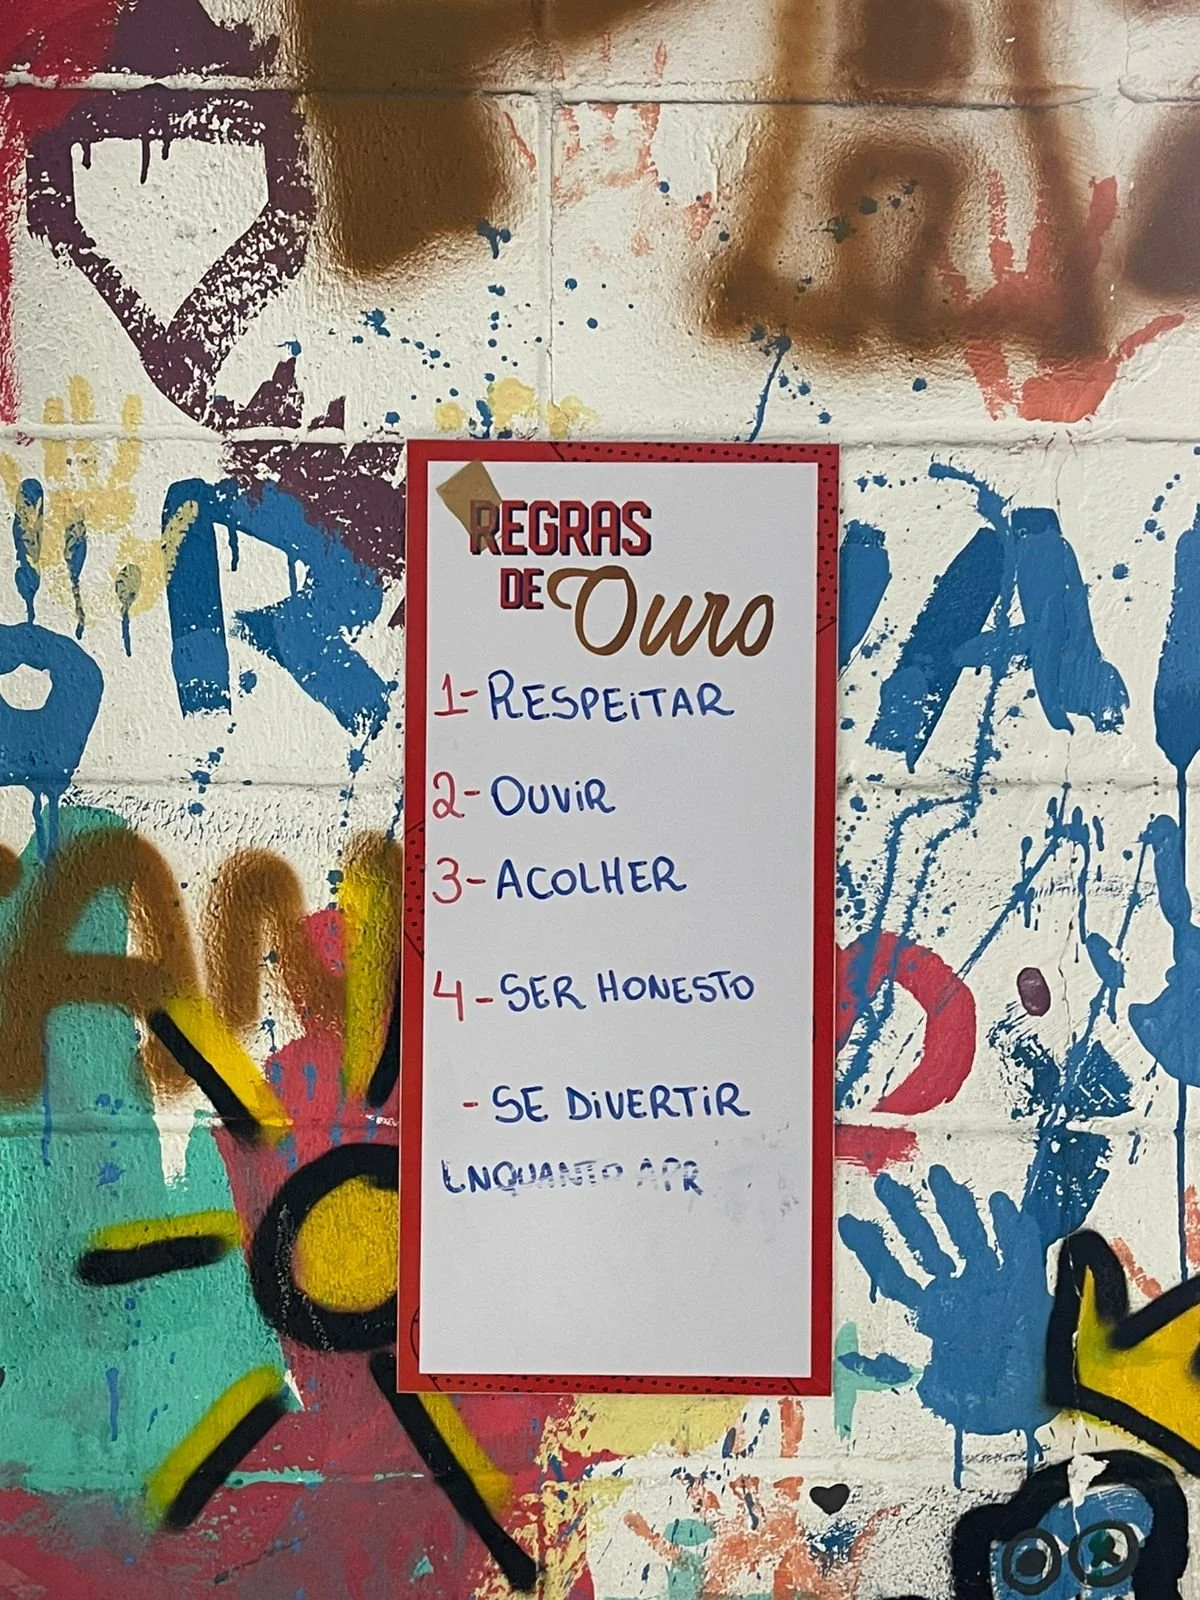 REGRAS
DE Ouro
1- RESPEITAR
2- OUVIR
3- ACOLHER
4- SER HONESTO
- SE DIVERTIR
ENQUANTO APR